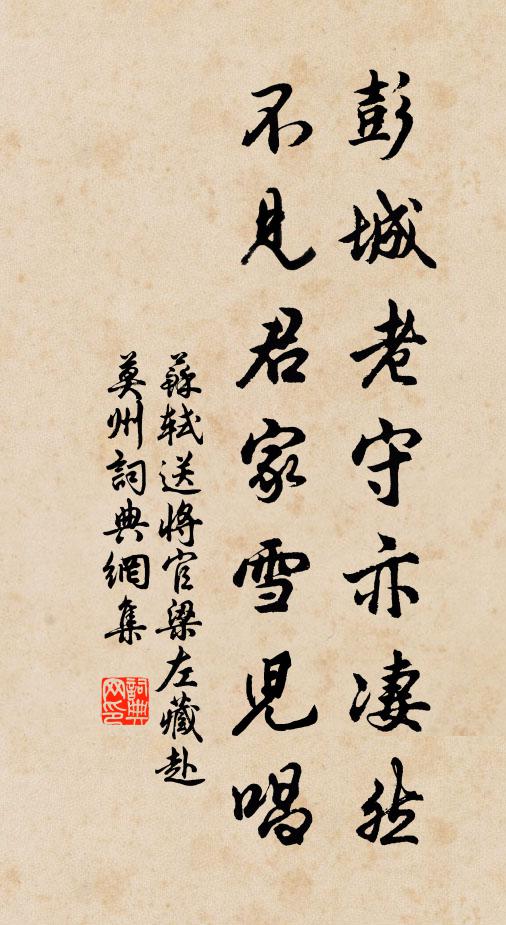 彭城老守亦凄然
不見君家雪兒唱
蘇軾送將官梁左藏赴
莫州詞典網集
詞典網印